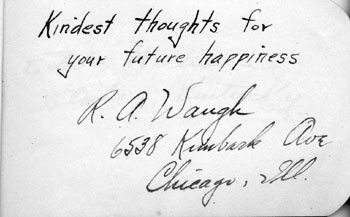 Kindest thoughts for
your future happiness
R. A. Waugh
6538 Kimbark Ave
Chicago, Ill.